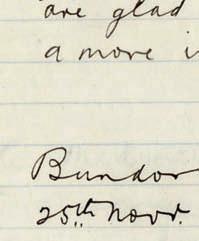 are glad
a more i
Bundor
25th Novr.